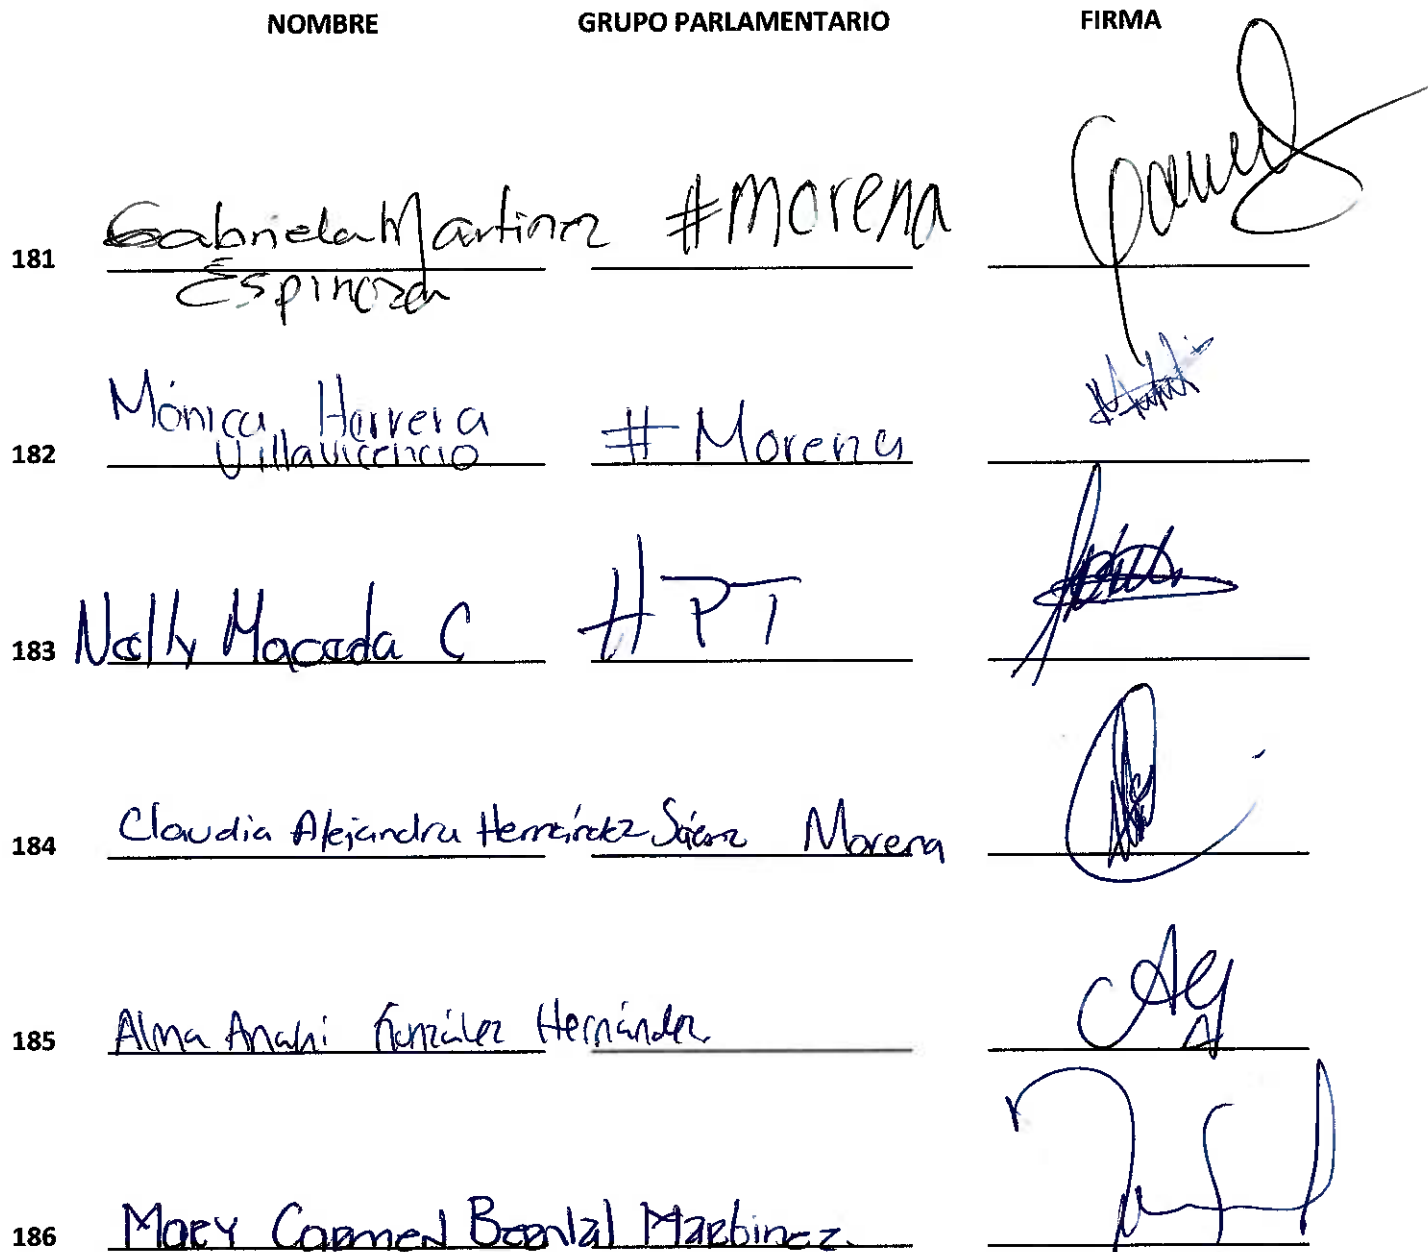 NOMBRE GRUPO PARLAMENTARIO FIRMA
181 Gabriela Martinez #morena
Espinoza
Mónica Herrera
182 Villavicencio # Morena
183 Nelly Maceda C #PT
184 Claudia Alejandra Hernández Sáenz Morena
185 Alma Anahi González Hernández
186 Mary Carmen Bernal Martinez